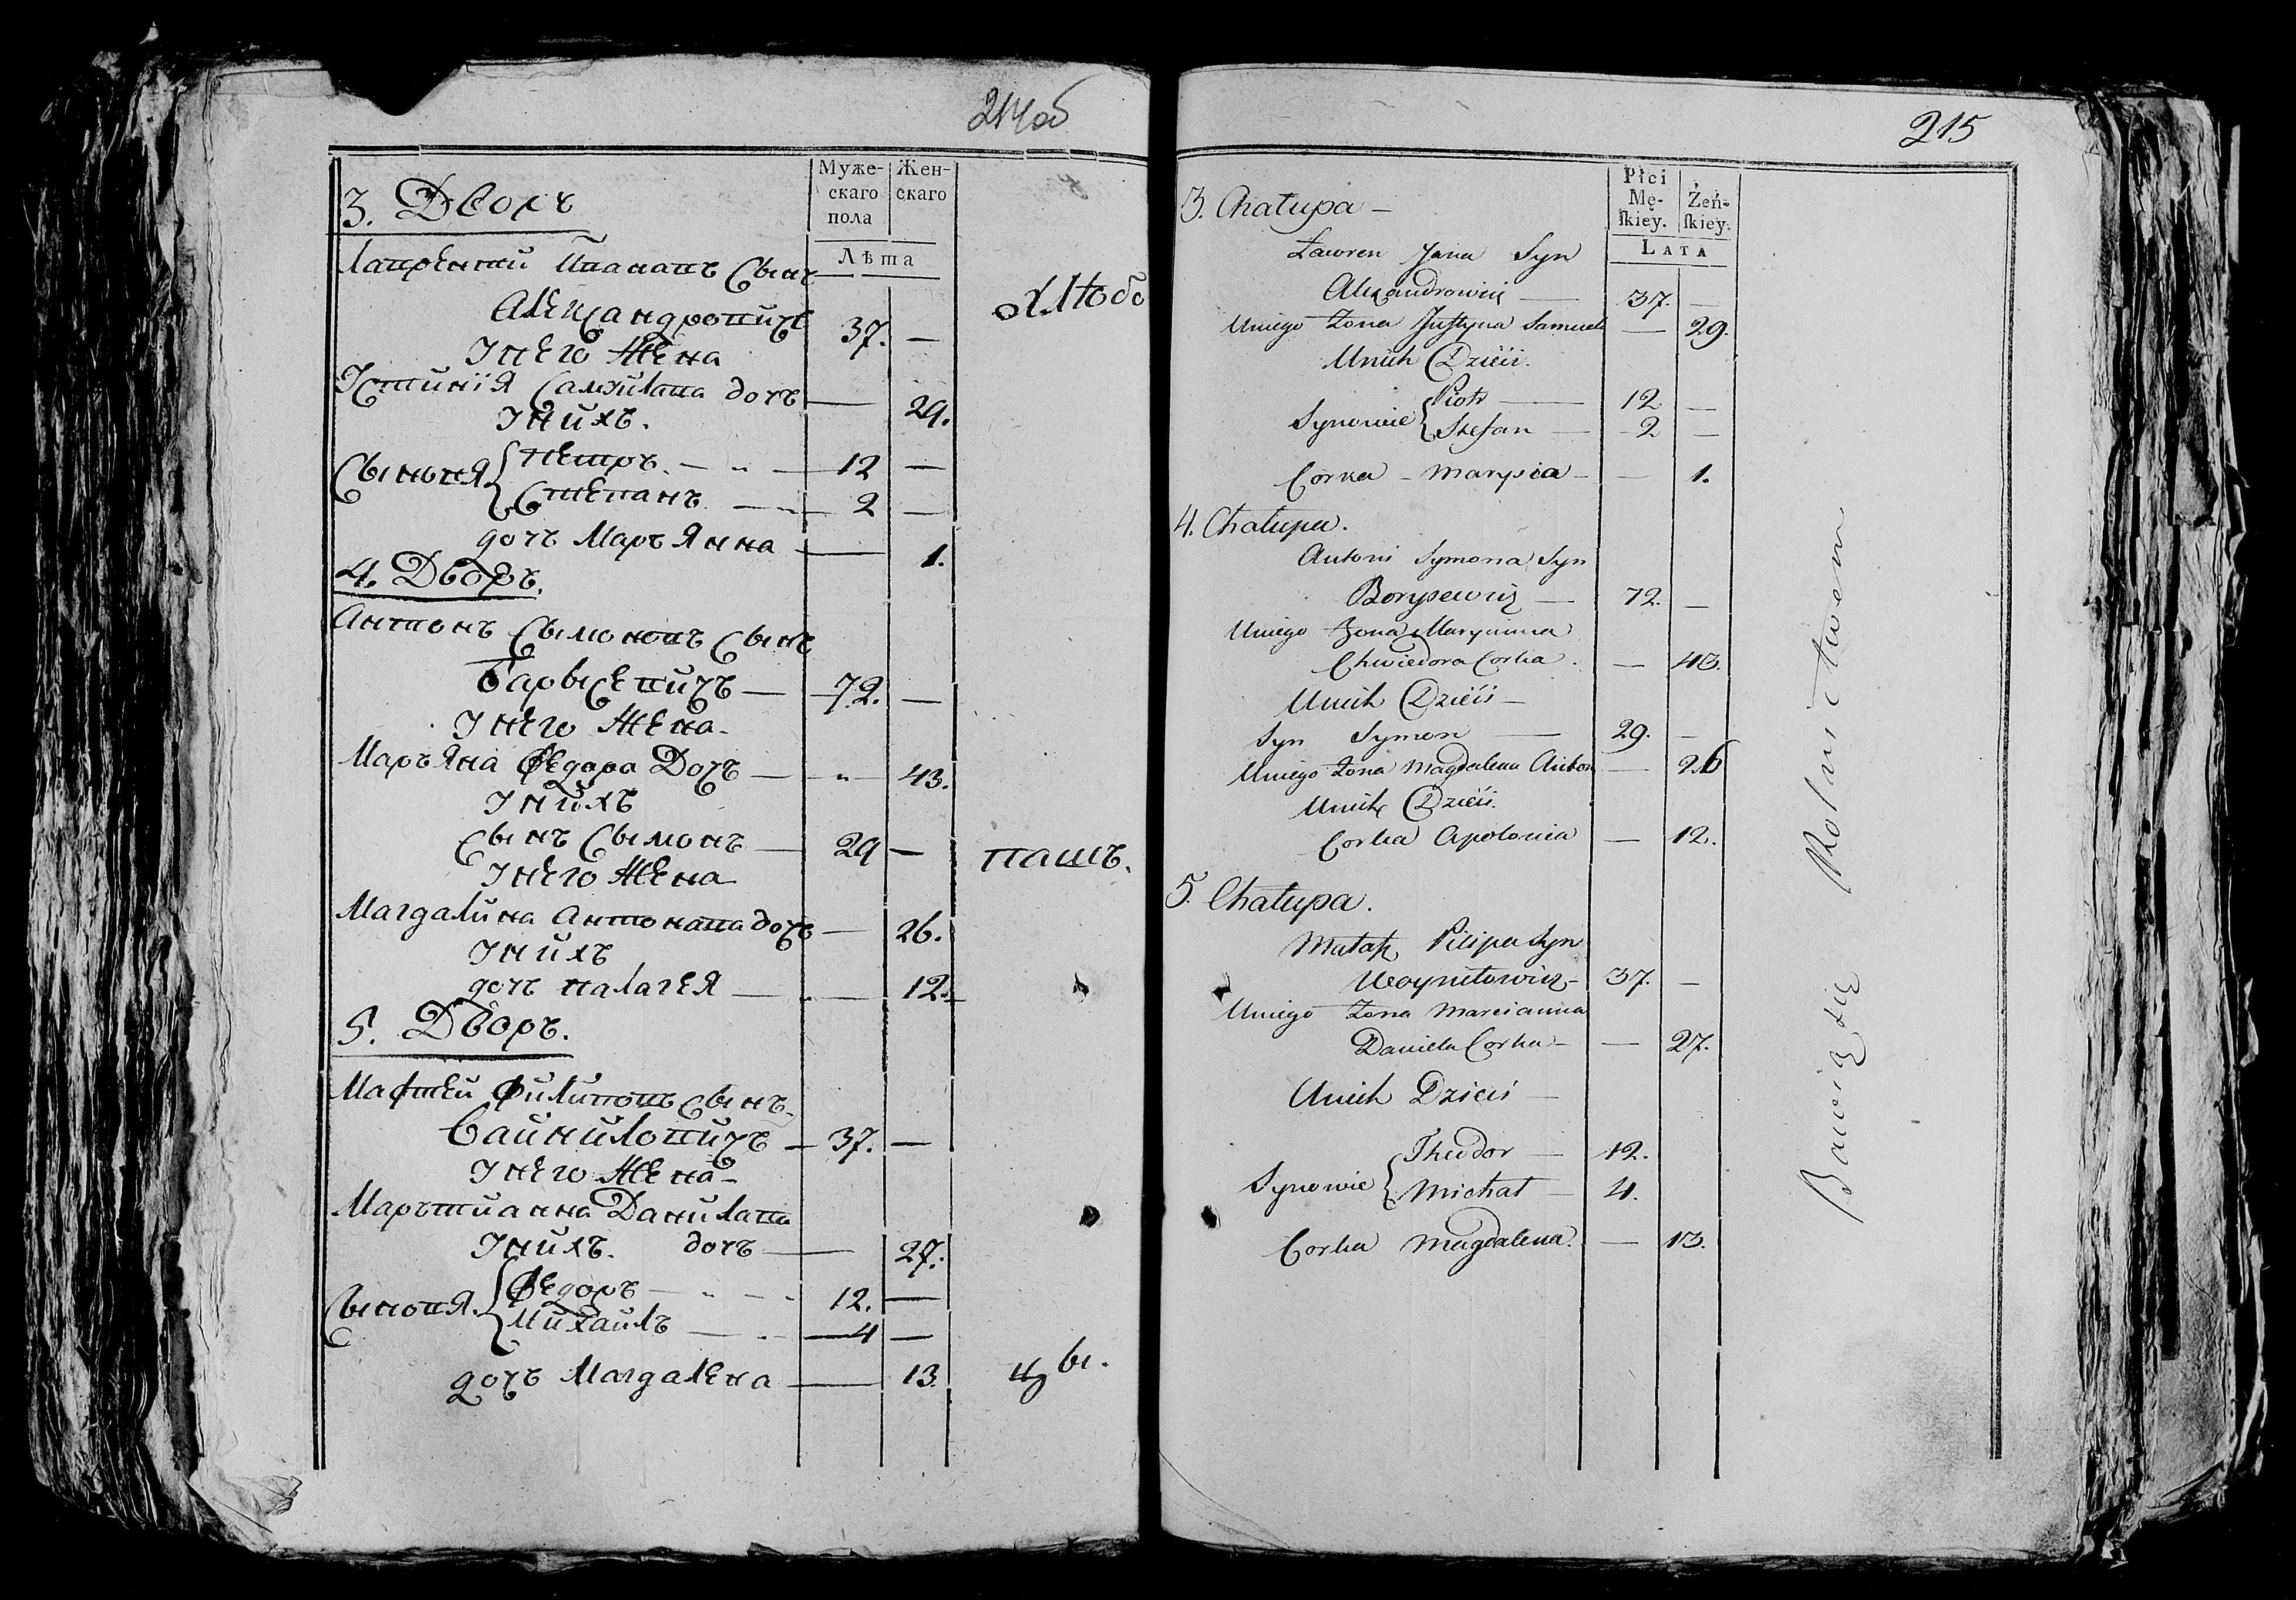 214об
Муже-
скаго
пола
Жен-
скаго
Лѣта
3. Дворъ
Лаврентий Ивановъ Сынъ
Александровичъ 37. —
У него Жена
Устинія Самуйлова дочь — 29.
У нихъ.
Сыновья { Петръ. — 12 —
Степанъ. — 2 —
дочь Маръянна — 1.
4. Дворъ.
Антонъ Сымоновъ Сынъ
Барысевичъ — 72. —
У него Жена
Маръяна Федора Дочь — 43.
У нихъ
Сынъ Сымонъ — 29 —
У него Жена
Магдалина Антонава дочь — 26.
У нихъ
дочь Палагея — 12.
5. Дворъ.
Мафтей Филиповъ сынъ
Вайниловичъ — 37. —
У него Жена
Марътианна Данилава
У нихъ. дочь — 27.
Сыновя. { Федоръ — 12. —
Михайлъ — 4 —
дочь Магдалена — 13.
хлѣбо
паш.
цы.
215
Płci
Mę-
skiey.
Żeń-
skiey.
LATA
3. Chałupa —
Ławren Jana Syn
Alexandrowicz — 37. —
U niego Żona Justyna Samuela — 29.
U nich Dzieci.
Synowie { Piotr — 12 —
Stefan — 2 —
Corka — Marysia — — 1.
4. Chałupa.
Antoni Symona Syn
Borysewicz — 72. —
U niego Żona Maryanna
Chwiedora Corka. — 43.
U nich Dzieci —
Syn Symon — 29. —
U niego Żona Magdalena Anton — 26
U nich Dzieci.
Corka Apolonia — 12.
5. Chałupa.
Pilipa Syn
Woyniłowicz — 37. —
U niego Żona Marcianna
Daniela Corka — — 27.
U nich Dzieci —
Synowie { Theodor — 12.
Michał — 4.
Corka Magdalena. — 13.
Bawią się Rolnictwem